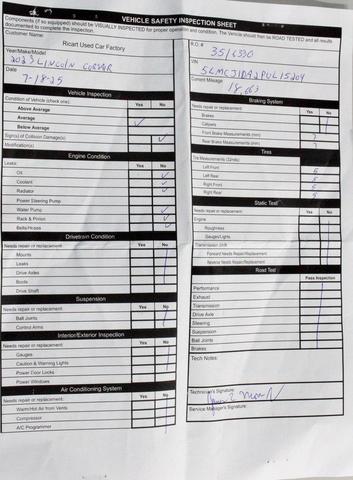 VEHICLE SAFETY INSPECTION SHEET
Components (if so equipped) should be VISUALLY INSPECTED for proper operation and condition. The Vehicle should then be ROAD TESTED and all results documented to complete the inspection.
Customer Name:
Ricart Used Car Factory
Year/Make/Model
2023 LINCOLN CORSAIR
Date
7-18-25
Vehicle Inspection
Condition of Vehicle (check one) Yes No
Above Average
Average
Below Average
Sign(s) of Collision Damage(s)
Modification(s)
Engine Condition
Leaks: Yes No
Oil
Coolant
Radiator
Power Steering Pump
Water Pump
Rack & Pinion
Belts/Hoses
Drivetrain Condition
Needs repair or replacement: Yes No
Mounts
Leaks
Drive Axles
Boots
Drive Shaft
Suspension
Needs repair or replacement: Yes No
Ball Joints
Control Arms
Interior/Exterior Inspection
Needs repair or replacement: Yes No
Gauges
Caution & Warning Lights
Power Door Locks
Power Windows
Air Conditioning System
Needs repair or replacement: Yes No
Warm/Hot Air from Vents
Compressor
A/C Programmer
R.O.#
35/6330
VIN
5LMCJ1DA2PUL15204
Current Mileage
Braking System
Needs repair or replacement: Yes No
Brakes
Calipers
Front Brake Measurements (mm) 7
Rear Brake Measurements (mm) 7
Tires
Tire Measurements (32nds)
Left Front 5
Left Rear 5
Right Front 5
Right Rear 5
Static Test
Needs repair or replacement: Yes No
Engine
Roughness
Gauges/Lights
Transmission Shift
Forward Needs Repair/Replacement
Reverse Needs Repair/Replacement
Road Test
Pass Inspection
Performance
Exhaust
Transmission
Drive Axle
Steering
Suspension
Ball Joints
Brakes
Tech Notes:
Technician's Signature:
Service Manager's Signature: